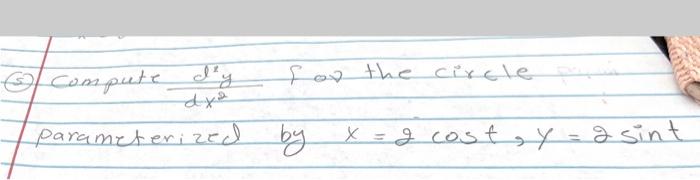 ⑤ Compute d²y/dx² for the circle
parameterized by x = 2 cost, y = 2 sint